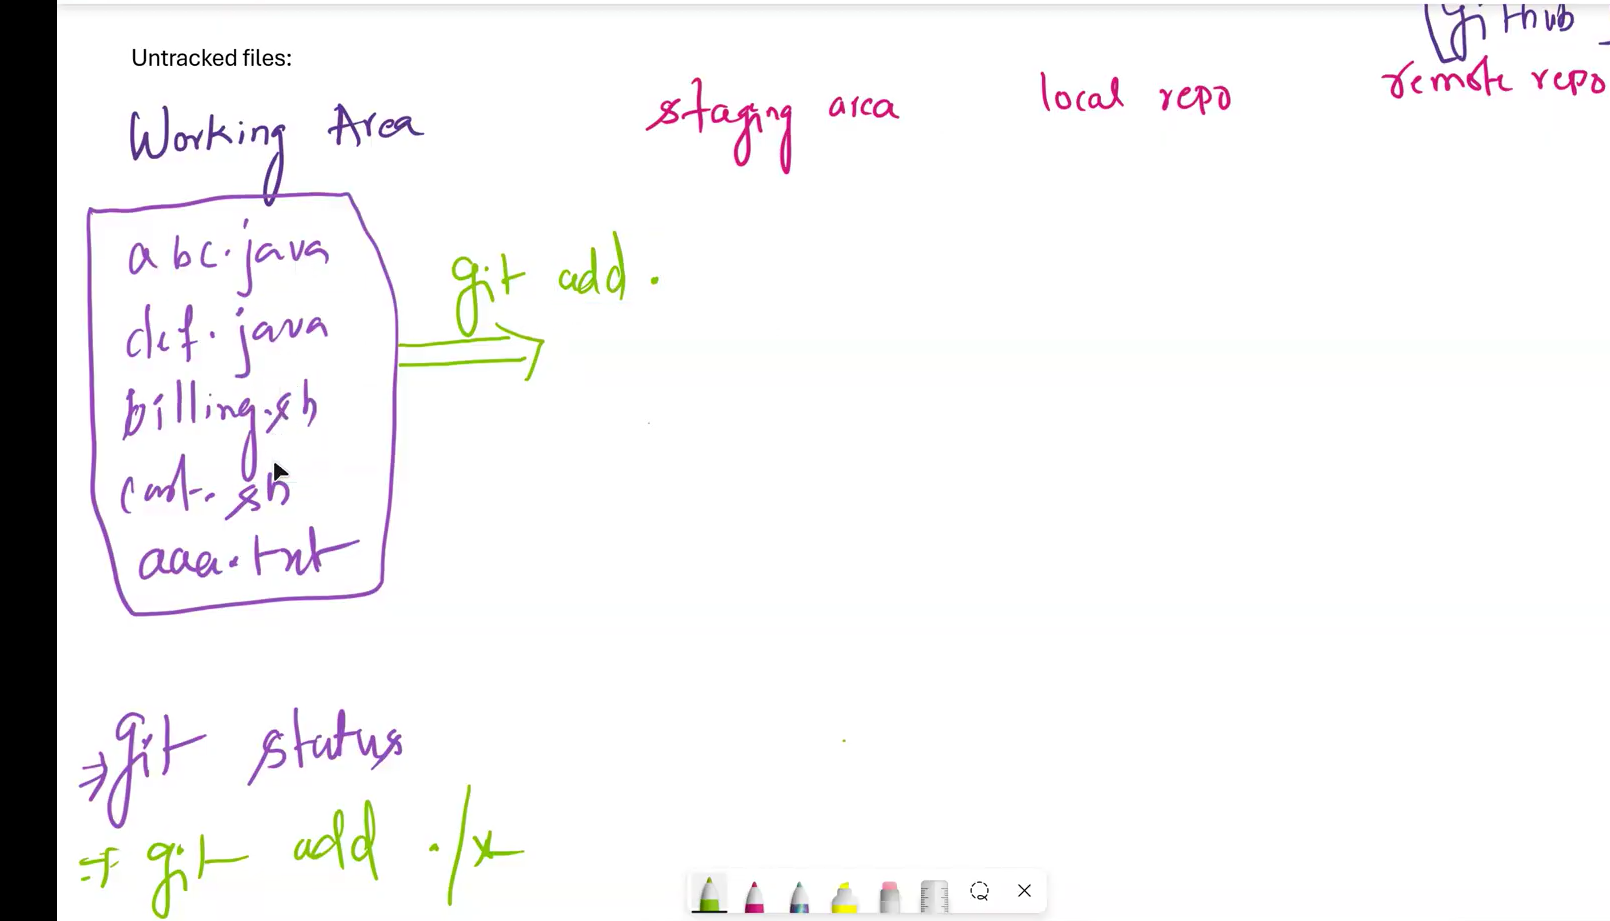 github
Untracked files:
Working Area
staging area
local repo
remote repo
abc.java
def.java
billing.sh
cust.sh
aaa.txt
git add .
⇒ git status
⇒ git add ./*